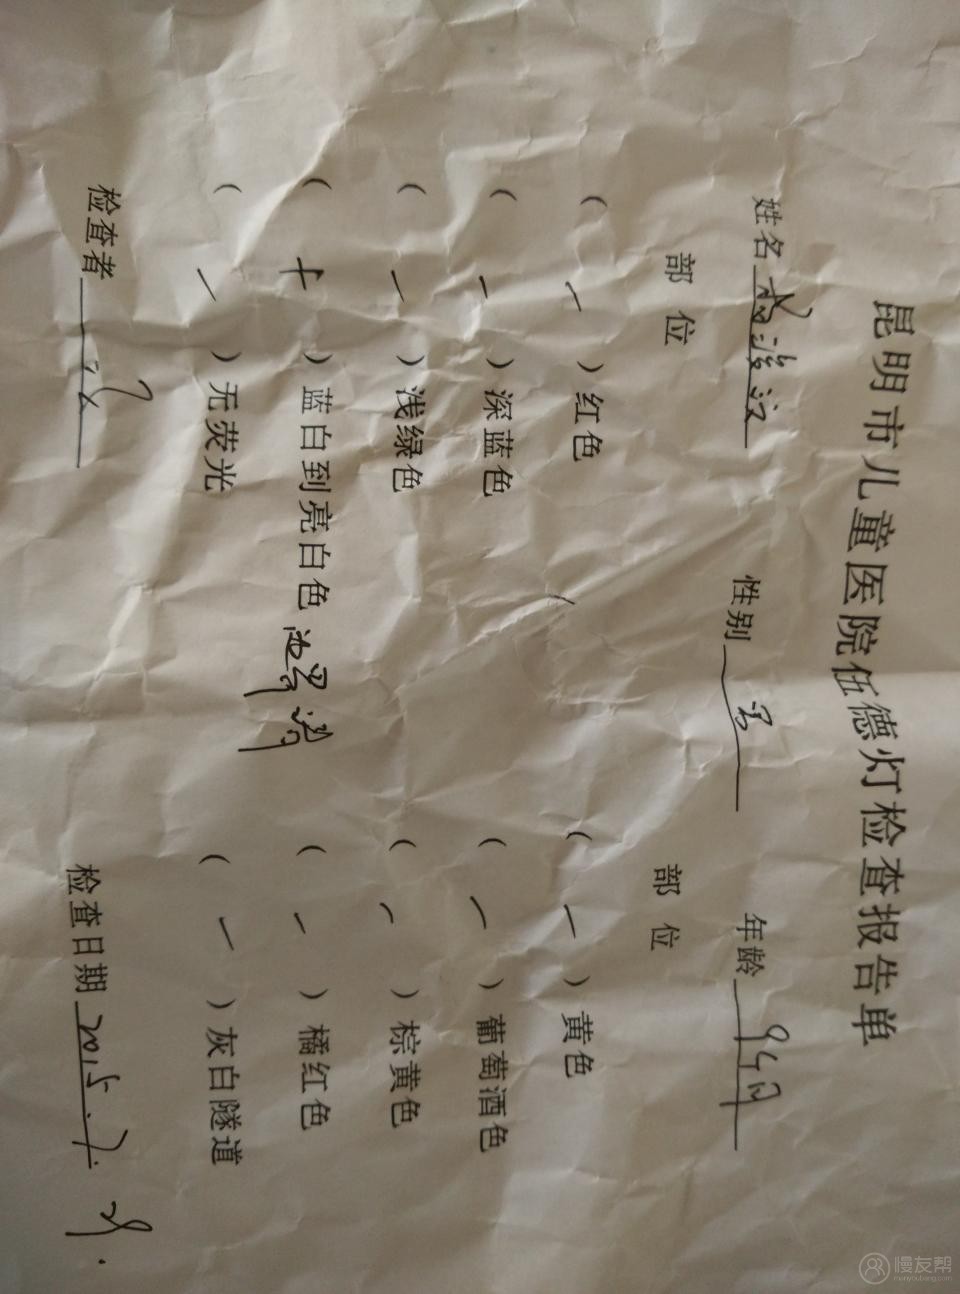 昆明市儿童医院伍德灯检查报告单
姓名 性别 男 年龄 9个月
部位 部位
( — ) 红色 ( — ) 黄色
( — ) 深蓝色 ( — ) 葡萄酒色
( — ) 浅绿色 ( — ) 棕黄色
( + ) 蓝白到亮白色 ( — ) 橘红色
( — ) 无荧光 ( — ) 灰白隧道
检查者 检查日期 2015.7.29.
慢友帮